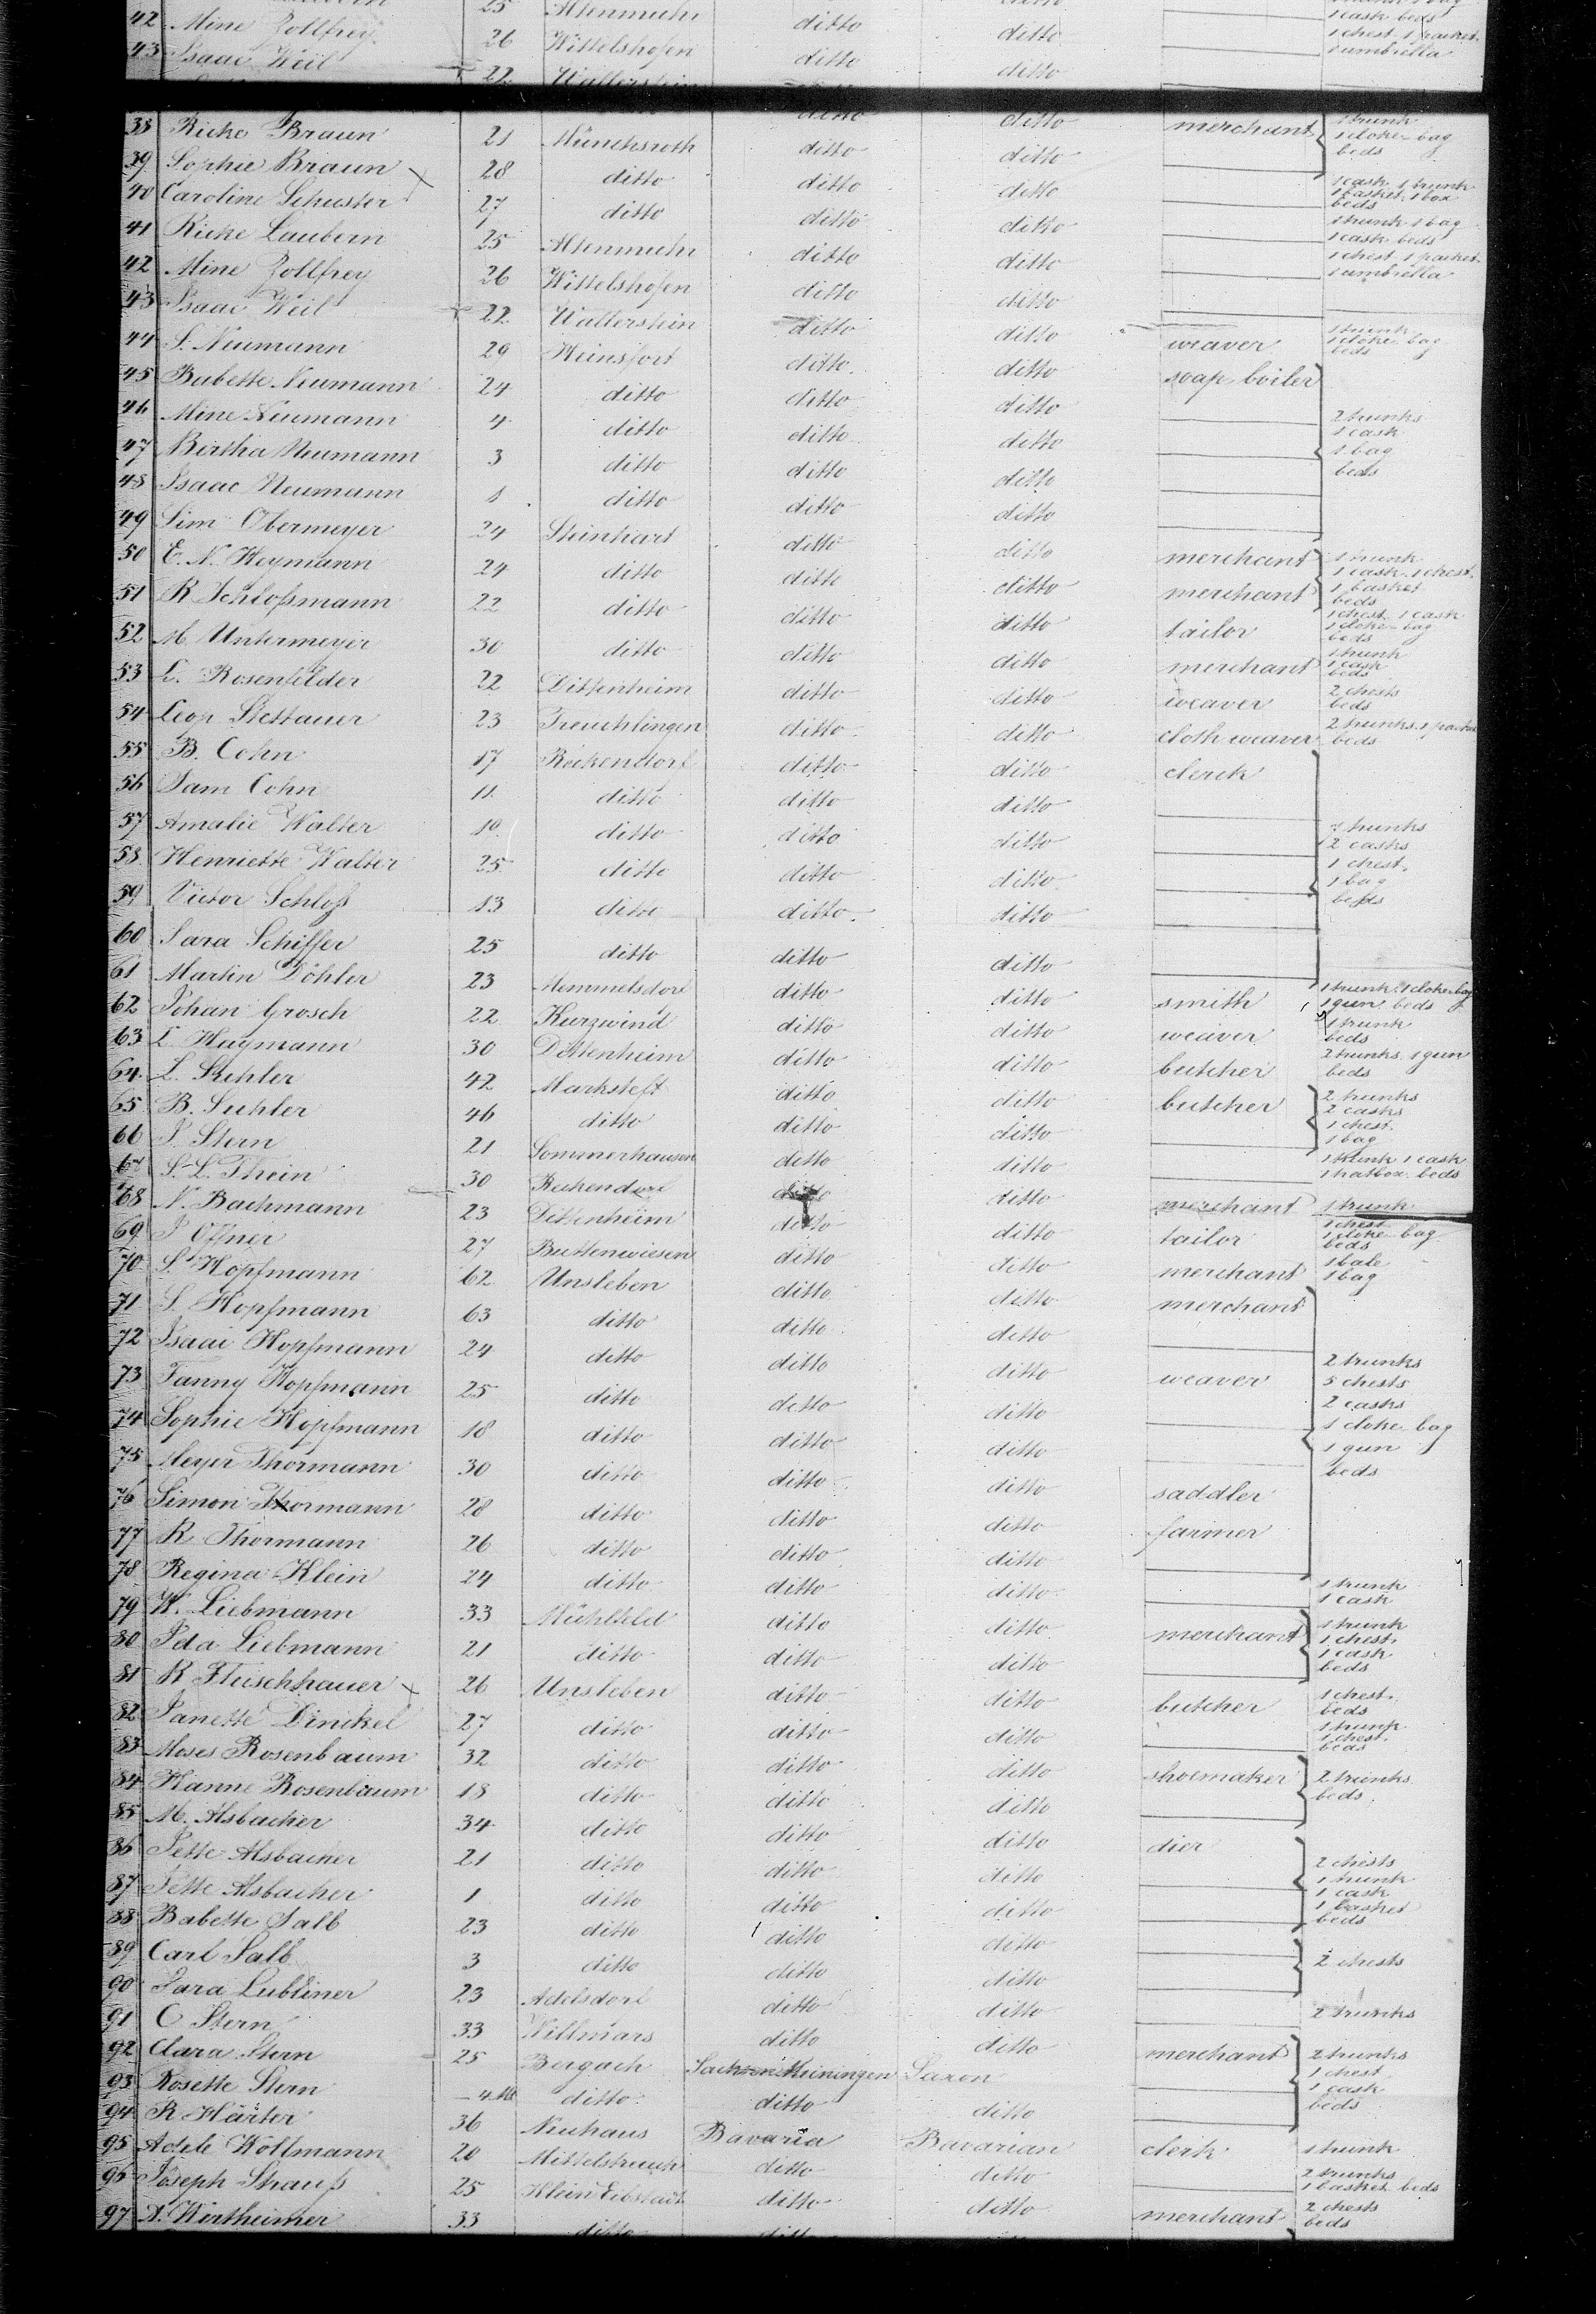 25 Altenmuhr ditto ditto 1 cask beds
42 Mine Zollfrey 26 Wittelshofen ditto ditto 1 chest 1 packet 1 umbrella
43 Isaac Weil 22 Wallerstein ditto
38 Ricke Braun 21 Münchsroth ditto ditto merchant 1 trunk 1 cloke-bag beds
39 Sophie Braun 28 ditto ditto ditto
40 Caroline Schuster 27 ditto ditto ditto 1 cask 1 trunk 1 basket 1 box beds
41 Ricke Laubern 25 Altenmuhr ditto ditto 1 trunk 1 bag 1 cask beds
42 Mine Zollfrey 26 Wittelshofen ditto ditto 1 chest 1 packet 1 umbrella
43 Isaac Weil 22 Wallerstein ditto ditto weaver 1 trunk 1 cloke-bag beds
44 S. Neumann 29 Heinsfort ditto ditto soap boiler
45 Babette Neumann 24 ditto ditto ditto
46 Mine Neumann 4 ditto ditto ditto 2 trunks 1 cask
47 Bertha Neumann 3 ditto ditto ditto 1 bag beds
48 Isaac Neumann 1 ditto ditto ditto
49 Sim Obermeyer 24 Steinhart ditto ditto merchant 1 trunk 1 cask 1 chest
50 E. N. Heymann 24 ditto ditto ditto merchant 1 basket beds
51 R Schloßmann 22 ditto ditto ditto tailor 1 chest 1 cask 1 cloke-bag beds
52 M. Untermeyer 30 ditto ditto ditto merchant 1 trunk 1 cask beds
53 L. Rosenfelder 22 Dittenheim ditto ditto weaver 2 chests beds
54 Leop Stettauer 23 Treuchtlingen ditto ditto cloth weaver 2 trunks 1 packet beds
55 B. Cohn 17 Reckendorf ditto ditto clerck
56 Sam Cohn 11 ditto ditto ditto
57 Amalie Walter 10 ditto ditto ditto trunks 2 casks
58 Henriette Walter 25 ditto ditto ditto 1 chest 1 bag
59 Victor Schloß 13 ditto ditto ditto beds
60 Sara Schiffer 25 ditto ditto ditto
61 Martin Döhler 23 Memmelsdorf ditto ditto smith 1 trunk 1 cloke-bag 1 gun beds
62 Johan Grosch 22 Kurzwind ditto ditto weaver 1 trunk beds
63 L Haymann 30 Dittenheim ditto ditto butcher 2 trunks 1 gun beds
64 L. Suhler 42 Marksteft ditto ditto butcher 2 trunks 2 casks
65 B. Suhler 46 ditto ditto ditto 1 chest 1 bag
66 J. Stern 21 Sommerhausen ditto ditto 1 trunk 1 cask 1 hatbox beds
67 S. L. Thein 30 Reckendorf ditto ditto merchant 1 trunk
68 N. Bachmann 23 Dittenheim ditto ditto tailor 1 chest 1 cloke-bag beds
69 J Offner 27 Buttenwiesen ditto ditto merchant 1 bale 1 bag
70 S. Hopfmann 62 Unsleben ditto ditto merchant
71 S. Hopfmann 63 ditto ditto ditto
72 Isaac Hopfmann 24 ditto ditto ditto weaver 2 trunks 5 chests
73 Fanny Hopfmann 25 ditto ditto ditto 2 casks
74 Sophie Hopfmann 18 ditto ditto ditto 1 cloke bag 1 gun
75 Meyer Thormann 30 ditto ditto ditto saddler beds
76 Simon Thormann 28 ditto ditto ditto farmer
77 R Thormann 26 ditto ditto ditto
78 Regina Klein 24 ditto ditto ditto 1 trunk 1 cask
79 W. Liebmann 33 Mühlfeld ditto ditto merchant 1 trunk 1 chest
80 Ida Liebmann 21 ditto ditto ditto 1 cask beds
81 R Fleischhauer 26 Unsleben ditto ditto butcher 1 chest beds
82 Janette Dinckel 27 ditto ditto ditto 1 trunk 1 chest beds
83 Moses Rosenbaum 32 ditto ditto ditto shoemaker 2 trunks
84 Hanne Rosenbaum 18 ditto ditto ditto beds
85 M. Alsbacher 34 ditto ditto ditto dier
86 Jette Alsbacher 21 ditto ditto ditto 2 chests 1 trunk
87 Jette Alsbacher 1 ditto ditto ditto 1 cask 1 basket
88 Babette Salb 23 ditto ditto ditto beds
89 Carl Salb 3 ditto ditto ditto 2 chests
90 Sara Lubliner 23 Adelsdorf ditto ditto 2 trunks
91 C Stern 33 Willmars ditto ditto merchant 2 trunks
92 Clara Stern 25 Bergach Sachsen Meiningen Saxon 1 chest
93 Rosette Stern 4 M ditto ditto ditto 1 cask beds
94 R Härter 36 Neuhaus Bavaria Bavarian clerk 1 trunk
95 Adele Wollmann 20 ditto ditto 2 trunks 1 basket beds
96 Joseph Strauß 25 Klein Eibstadt ditto ditto merchant 2 chests beds
97 A. Wertheimer 33 ditto ditto